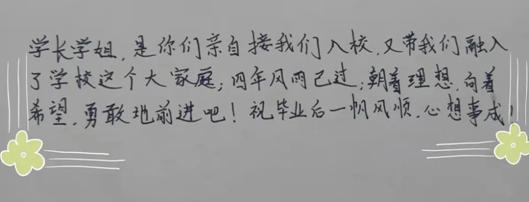 学长学姐,是你们亲自接我们入校,又带我们融入
了学校这个大家庭;四年风雨已过;朝着理想,向着
希望,勇敢地前进吧!祝毕业后一帆风顺,心想事成!